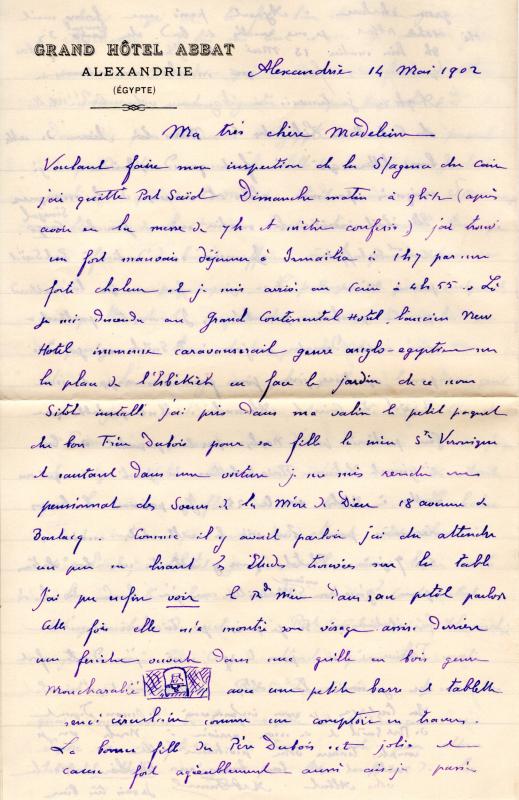 GRAND HÔTEL ABBAT
ALEXANDRIE
(ÉGYPTE)
Alexandrie 14 Mai 1902
Ma très chère Madeleine
Voulant faire mon inspection de la S/agence du Caire
j'ai quitté Port Saïd Dimanche matin à (après
avoir eu la messe de 7h et m'être confessé) j'ai trouvé
un fort mauvais déjeuner à Ismailia à 1h7 par une
forte chaleur et je suis arrivé au Caire à 4h55. Là
je suis descendu au Grand Continental Hotel, l'ancien New
Hotel immense caravanserail genre anglo-egyptien sur
la place de l'Esbékieh en face le jardin de ce nom
Sitôt installé j'ai pris dans ma valise le petit paquet
du bon Frère Dubois pour sa fille la mère Ste Véronique
et sautant dans une voiture je me suis rendu au
pensionnat des Soeurs de la Mère de Dieu 18 avenue de
Boulacq. Comme il y avait parloir j'ai du attendre
un peu en lisant les Etudes trouvées sur la table
J'ai pu enfin voir la Rde Mère dans son petit parloir
Cette fois elle m'a montré son visage assise derrière
une fenêtre ouverte dans une grille en bois genre
Moucharabié avec une petite barre et tablette
semi circulaire comme un comptoir en travers.
La bonne fille du Père Dubois est jolie et
cause fort agréablement aussi ai-je passé